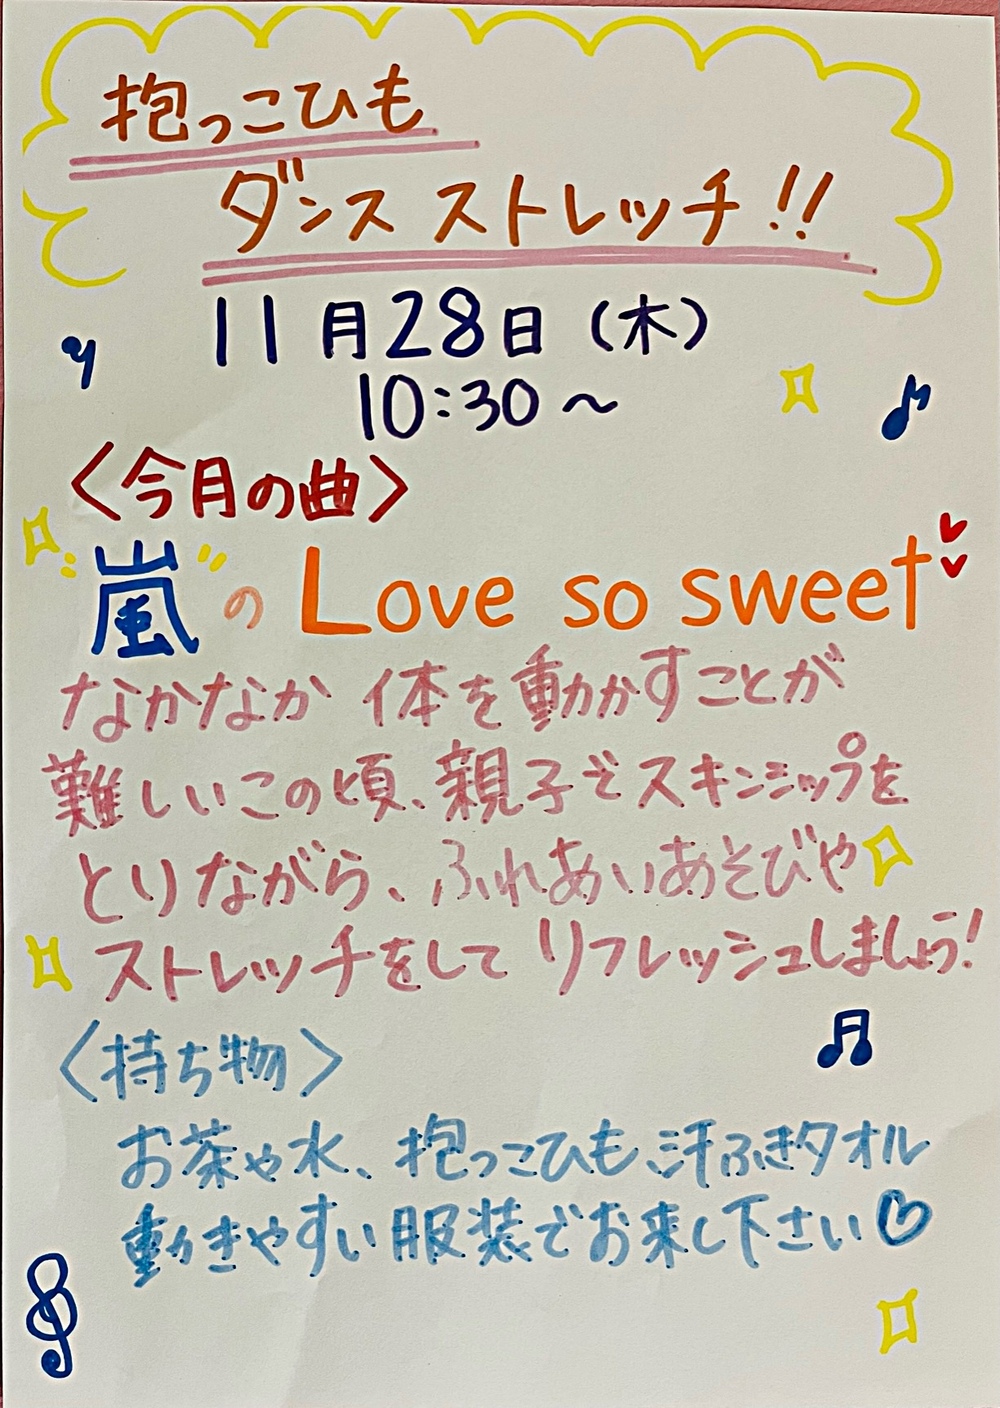 抱っこひも
ダンス ストレッチ!!
11月28日(木)
10:30～
〈今月の曲〉
嵐"の Love so sweet
なかなか 体を動かすことが
難しいこの頃、親子でスキンシップを
とりながら、ふれあいあそびや
ストレッチをして リフレッシュしましょう!
〈持ち物〉
お茶や水、抱っこひも、汗ふきタオル
動きやすい服装でお来し下さい♡